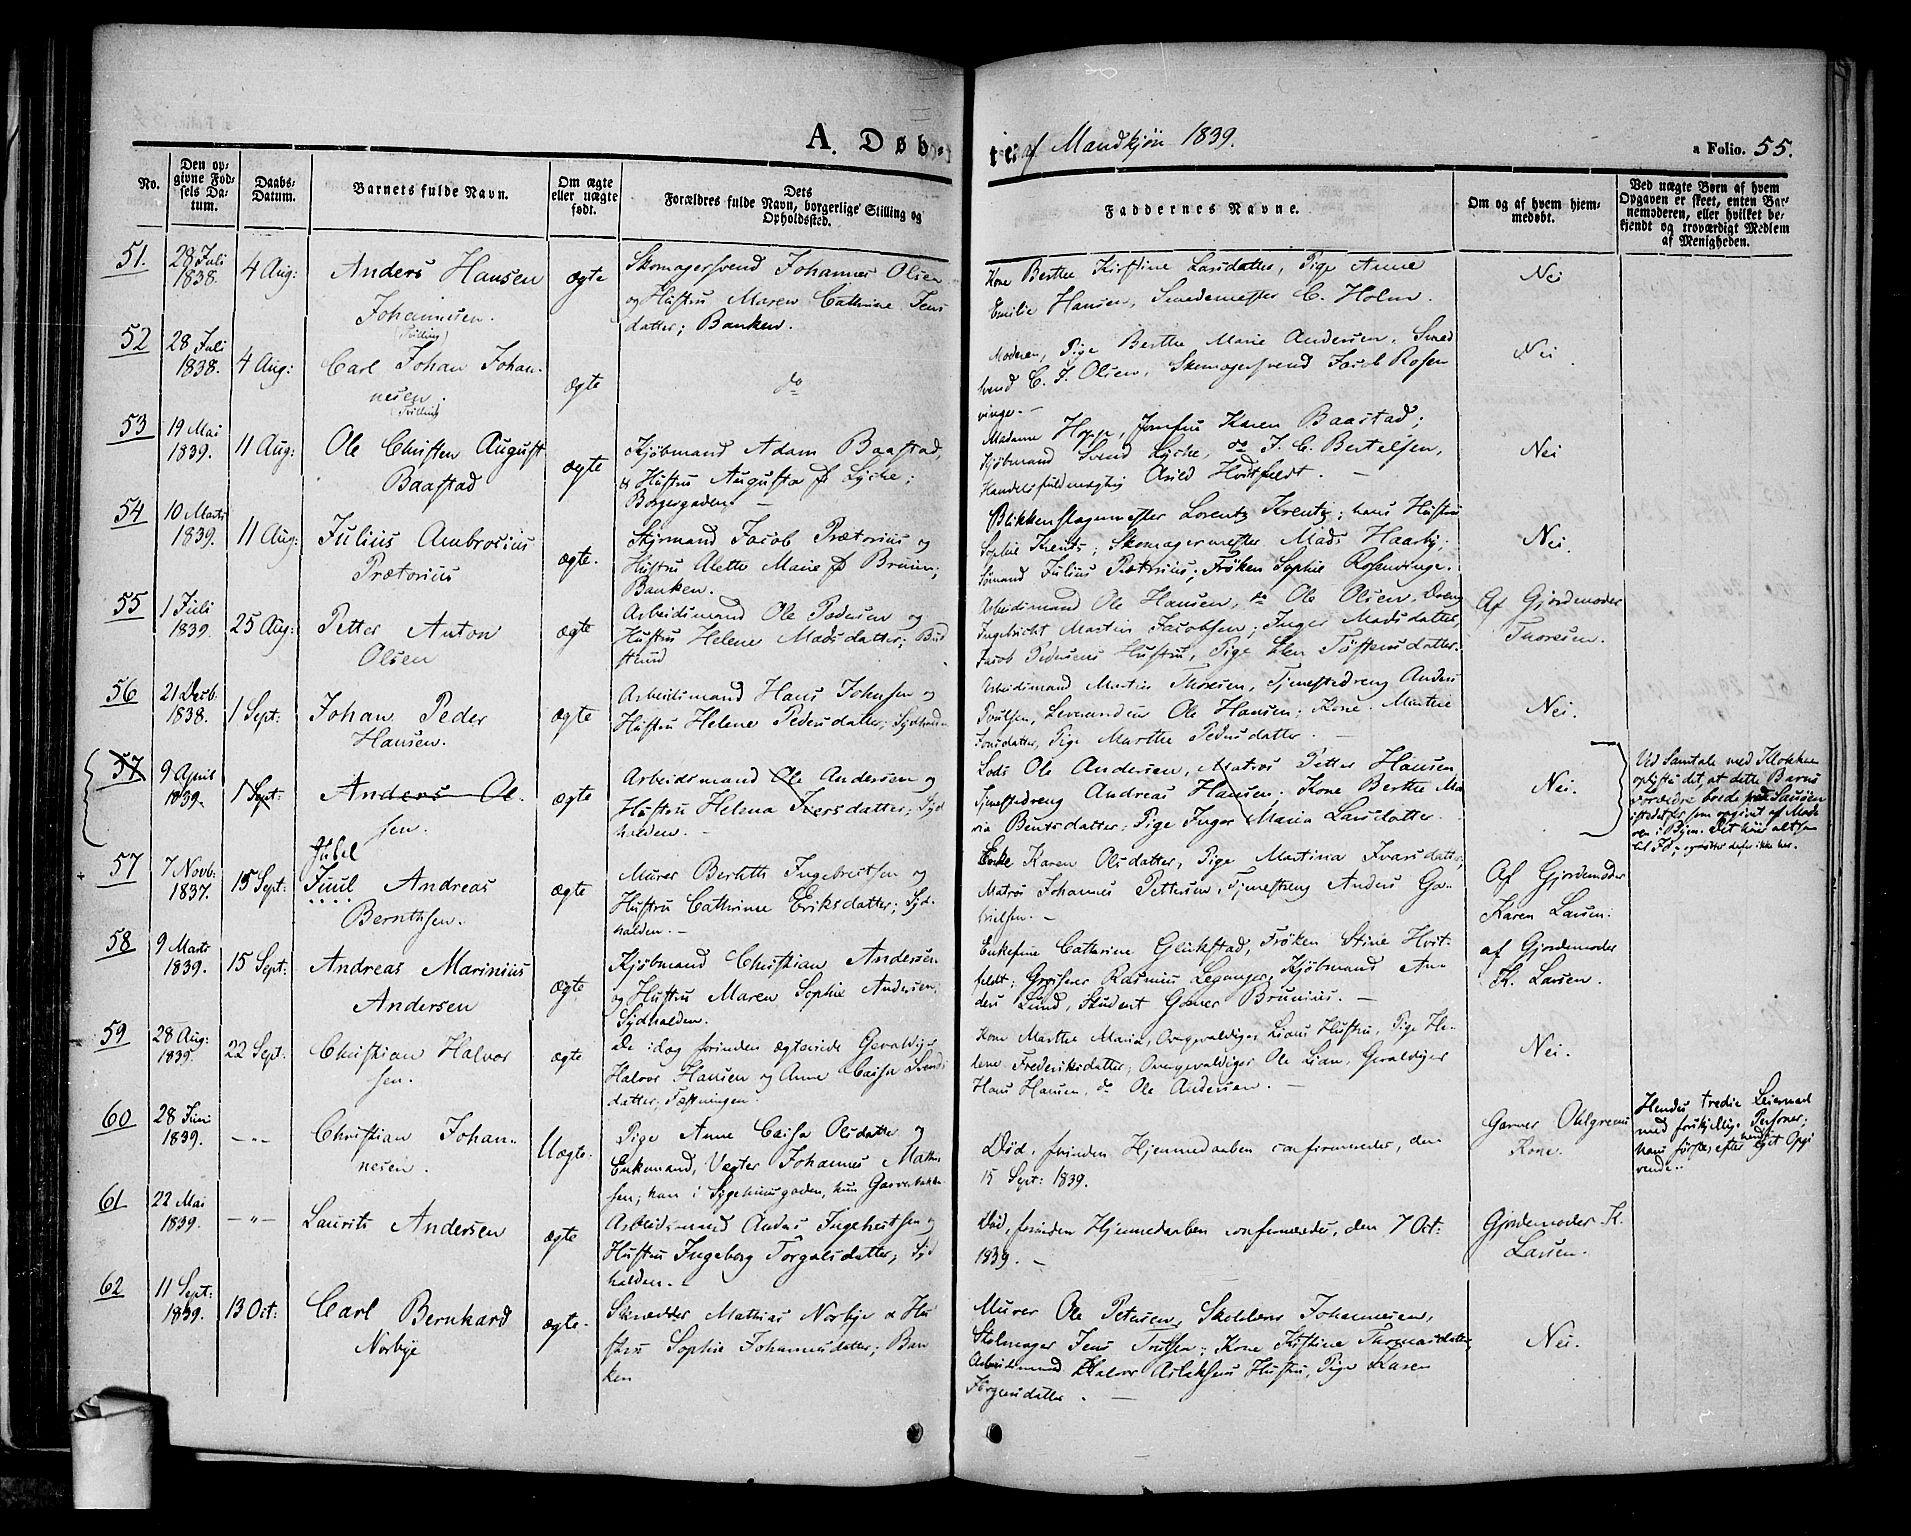 A. Døb-
te af Mandkjøn 1839.
a Folio. 55.
No.
Den op-
givne Fød-
sels Da-
tum.
Daabs-
Datum.
Barnets fulde Navn.
Om ægte
eller uægte
født.
Dets
Forældres fulde Navn, borgerlige Stilling og
Opholdssted.
Faddernes Navne.
Om og af hvem hjem-
medøbt.
Ved uægte Børn af hvem
Opgaven er skeet, enten Bar-
nemoderen, eller hvilket be-
kjendt og troværdigt Medlem
af Menigheden.
51.
28 Juli
1838.
4 Aug:
Anders Hansen
Johannesen.
(Tvilling)
ægte
Skomagersvend Johannes Olsen
og Hustru Maren Cathrine Jens
datter; Banken.
Kone Berthe Kirstine Larsdatter, Pige Anne
Emilie Hansen, Smedemester C. Holm.
Nei
52
28 Juli
1838.
4 Aug:
Carl Johan Johan-
nesen.
(Tvilling)
ægte
do
Moderen, Pige Berthe Marie Andersen, Smed
svend C. J. Olsen, Skomagersvend Jacob Rosen
vinge. –
Nei
53
19 Mai
1839.
11 Aug:
Ole Christen August
Baastad
ægte
Kjøbmand Adam Baastad,
& Hustru Augusta f. Lyche;
Borgergaden. –
Madame Hopp, Jomfru Karen Baastad;
Kjøbmand Svend Lyche, do J. C. Bertelsen,
Handelsfuldmægtig Arild Hvitfeldt. –
Nei
54
10 Marts
1839.
11 Aug:
Julius Ambrosius
Prætorius
ægte.
Styrmand Jacob Prætorius og
Hustru Alette Marie f. Bruun;
Banken.
Blikkenslagermester Lorentz Krentz; hans Hustru
Sophie Krentz; Skomagermester Mads Haarby;
Sømand Julius Prætorius; Frøken Sophie Rosenvinge.
Nei.
55
1 Juli
1839.
25 Aug:
Petter Anton
Olsen
ægte
Arbeidsmand Ole Pedersen og
Hustru Helene Madsdatter;
Arbeidsmand Ole Hansen, do Ole Olsen, Dreng
Ingebricht Martin Jacobsen; Inger Madsdatter,
Jacob Pedersens Hustru, Pige Elen Tostensdatter.
Af Gjordemoder
Thoresen.
56
21 Decb.
1838.
1 Sept:
Johan Peder
Hansen.
ægte
Arbeidsmand Hans Johnsen og
Hustru Helene Pedersdatter; Sydhalden
Arbeidsmand Martin Thoresen, Tjenestedreng Anders
Poulsen, Leverandeur Ole Hansen; Kone Marthe
Jonsdatter, Pige Marthe Pedersdatter. –
Nei.
57
9 April
1839.
1 Sept:
Anders Ol-
sen.
ægte
Arbeidsmand Ole Andersen og
Hustru Helena Iversdatter; Syd
halden. –
Lods Ole Andersen, Matros Petter Hansen
Tjenestedreng Andreas Hansen, Kone Berthe Ma
ria Bentsdatter; Pige Inger Maria Larsdatter.
Nei.
Ved Samtale med Klokken
oplystes det, at dette Barns
Forældre boede paa Sauøen
istedetfor som opgivet af Mode
ren i Byen. Det hører altsaa
til
57
7 Novb.
1837.
15 Sept:
Jubel
Juul Andreas
Bernthsen.
ægte
Murer Bernth Ingebretsen og
Hustru Cathrine Eriksdatter; Syd
halden. –
Enke Karen Olsdatter, Pige Martina Ivarsdatter,
Matros Johannes Pettersen, Tjenestdreng Anders Ga-
brielsen. –
Af Gjordemoder
Karen Larsen.
58
9 Marts
1839.
15 Sept:
Andreas Marinius
Andersen
ægte
Kjøbmand Christian Andersen
og Hustru Maren Sophie Andersen;
Sydhalden.
Enkefrue Catharine Glükstad, Frøken Stine Hvit-
feldt; Grosserer Rasmus Leganger, Kjøbmand An-
ders Lund, Student Gomer Brunius. –
af Gjordemoder
K. Larsen.
59
28 Aug:
1839.
22 Sept:
Christian Halvor
sen.
ægte
De idag forinden ægteviede Gevaldiger
Halvor Hansen og Anne Caisa Svends
datter; Fæstningen.
Kone Marthe Maria, Overgevaldiger Lians Hustru, Pige He-
lene Frederiksdatter, Overgevaldiger Ole Lian, Gevaldiger
Hans Hansen, do Ole Andersen. –
Nei.
60
28 Juni
1839.
–"–
Christian Johan-
nesen.
Uægte.
Pige Anne Caisa Olsdatter og
Enkemand, Vægter Johannes Mathi
sen; han i Sygehuusgaden, hun Garverbakken
Død, forinden Hjemmedaaben confirmeredes, den
15 Sept: 1839.
Garver Ohlgreens
Kone.
Hendes tredie Leiermaal
med forskjellige Personer;
hans første, efter hendes eget Opgi
vende.
61
22 Mai
1839.
–"–
Laurits Andersen
ægte
Arbeidsmand Anders Ingebretsen og
Hustru Ingeborg Torgalsdatter; Syd
halden. –
Død, forinden Hjemmedaaben confirmeredes, den 7 Oct:
1839. –
Gjordemoder K.
Larsen.
62
11 Sept:
1839.
13 Oct:
Carl Bernhard
Norbye
ægte.
Skrædder Mathias Norbye & Hu
stru Sophie Johannesdatter; Ban
ken
Murer Ole Petersen, Johannesen,
Stolmager Jens Kone Kirstine Thomasdatter,
Arbeidsmand Halvor Aslaksens Hustru, Pige Karen
Jørgensdatter. –
Nei.